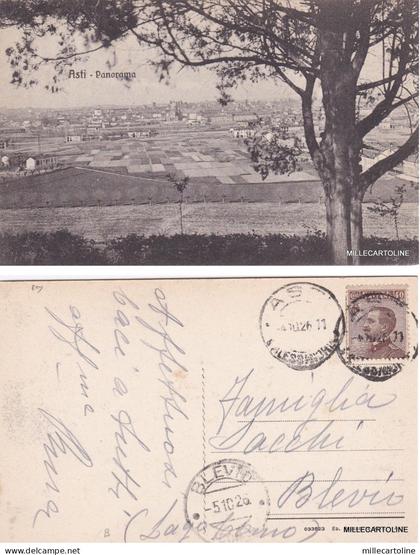 Asti - Panorama
MILLECARTOLINE
Affettuosi
baci a tutti
aff.ma
ASTI
-4.10.26 11
(ALESSANDRIA)
40
Famiglia
Sacchi
Blevio
(Lago Como)
BLEVIO
-5.10.26
033623
MILLECARTOLINE
© millecartoline
www.millecartoline.com